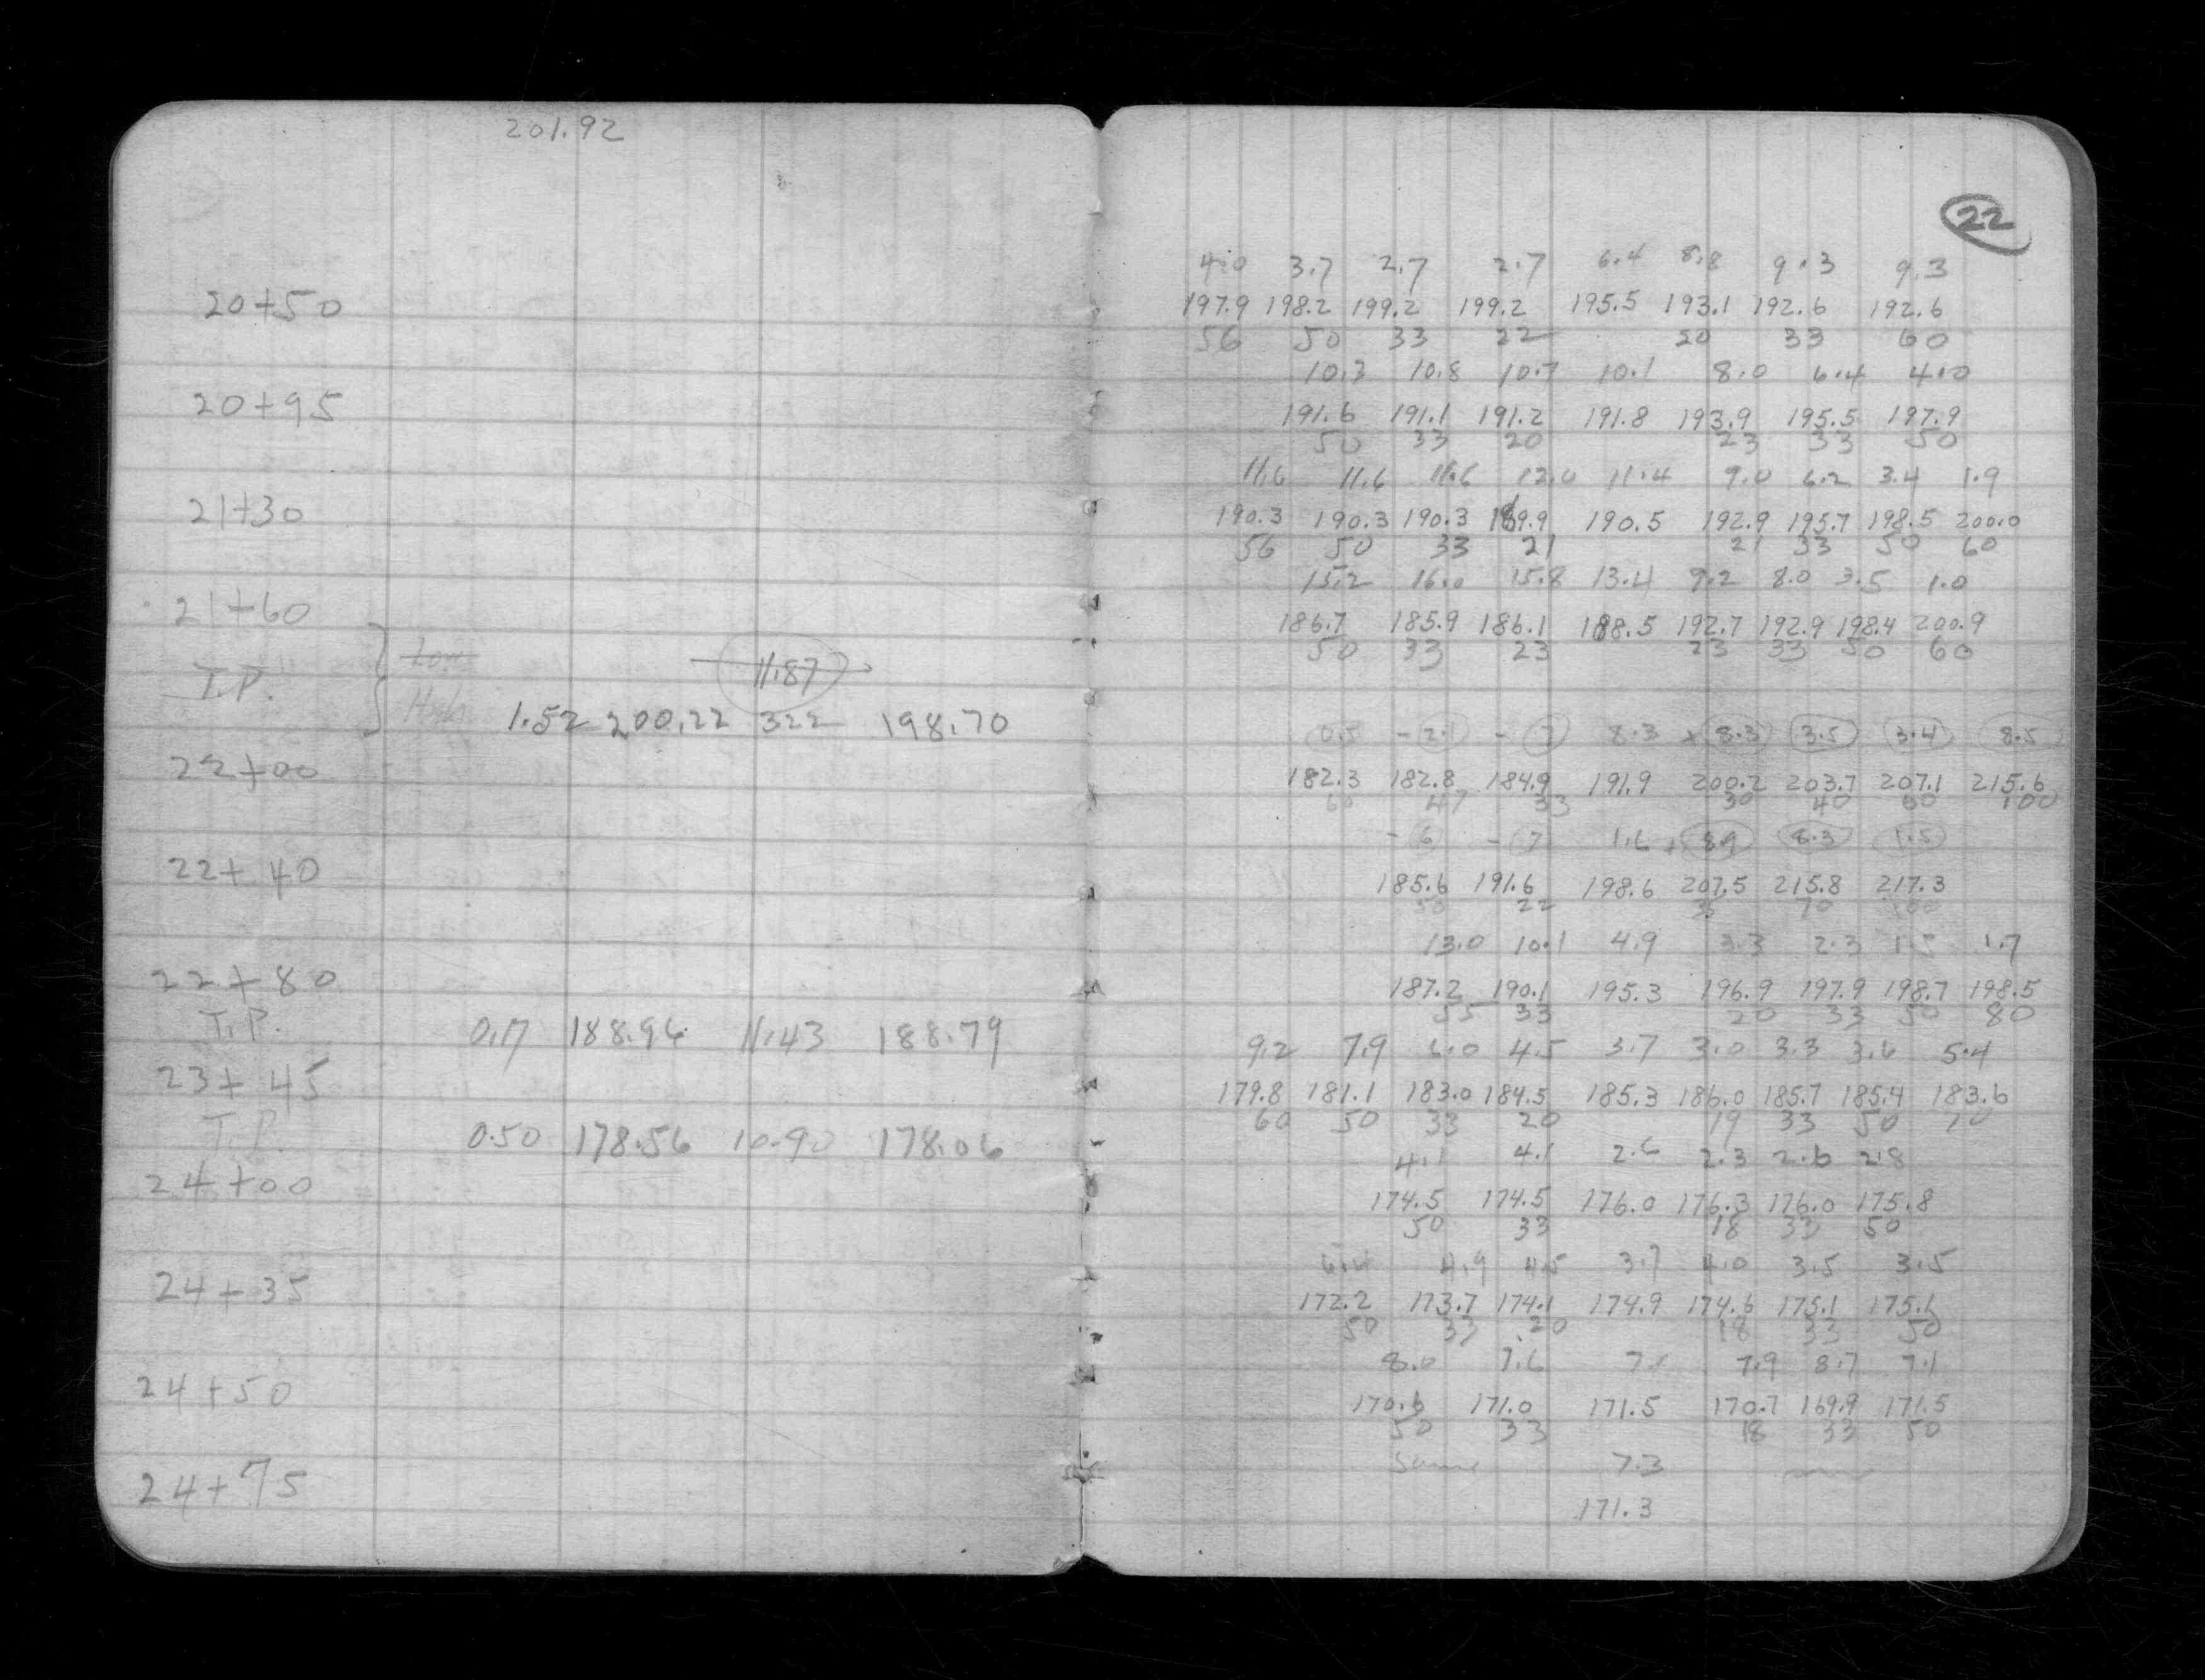 201.92
20+50
20+95
21+30
21+60
T.P. Low 11.87
High 1.52 200.22 322 198.70
22+00
22+40
22+80
T.P. 0.17 188.96 11.43 188.79
23+45
T.P. 0.50 178.56 10.90 178.06
24+00
24+35
24+50
24+75
22
4.0 3.7 2.7 2.7 6.4 8.8 9.3 9.3
197.9 198.2 199.2 199.2 195.5 193.1 192.6 192.6
56 50 33 22 20 33 60
10.3 10.8 10.7 10.1 8.0 6.4 4.0
191.6 191.1 191.2 191.8 193.9 195.5 197.9
50 33 20 23 33 50
11.6 11.6 11.6 12.0 11.4 9.0 6.2 3.4 1.9
190.3 190.3 190.3 189.9 190.5 192.9 195.7 198.5 200.0
56 50 33 21 21 33 50 60
15.2 16.0 15.8 13.4 9.2 8.0 3.5 1.0
186.7 185.9 186.1 188.5 192.7 192.9 198.4 200.9
50 33 23 23 33 50 60
0.5 - 2.1 - 7 8.3 + 8.3 3.5 3.4 8.5
182.3 182.8 184.9 191.9 200.2 203.7 207.1 215.6
60 47 33 30 40 60 100
- 6 - 7 1.6 + 8.9 8.3 1.5
185.6 191.6 198.6 207.5 215.8 217.3
50 22 70 100
13.0 10.1 4.9 3.3 2.3 1.5 1.7
187.2 190.1 195.3 196.9 197.9 198.7 198.5
55 33 20 33 50 80
9.2 7.9 6.0 4.5 3.7 3.0 3.3 3.6 5.4
179.8 181.1 183.0 184.5 185.3 186.0 185.7 185.4 183.6
60 50 33 20 19 33 50 70
4.1 4.1 2.6 2.3 2.6 2.8
174.5 174.5 176.0 176.3 176.0 175.8
50 33 18 33 50
6.4 4.9 4.5 3.7 4.0 3.5 3.5
172.2 173.7 174.1 174.9 174.6 175.1 175.1
50 33 20 18 33 50
8.0 7.6 7.1 7.9 8.7 7.1
170.6 171.0 171.5 170.7 169.9 171.5
50 33 18 33 50
Same 7.3
171.3